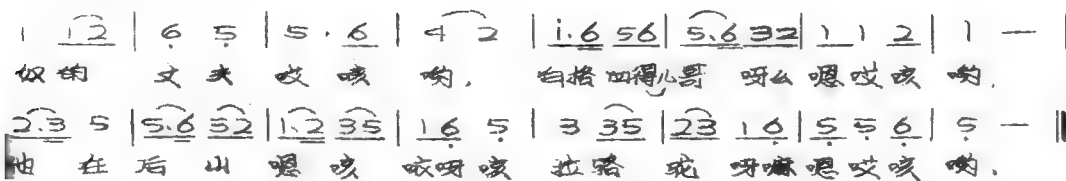 1 12 | 6 5 | 5 · 6 | 4 2 | i·6 56 | 5·6 32 | 1 1 2 | 1 — |
奴的 丈夫 哎咳 哟, 白格 得儿哥 呀么嗯哎咳 哟,
2·3 5 | 5·6 52 | 1·2 35 | 16 5 | 3 35 | 23 16 | 5 5 6 | 5 — ‖
他 在 后 山 嗯 咳 咳呀咳 拉骆 驼 呀嘛嗯哎咳 哟。